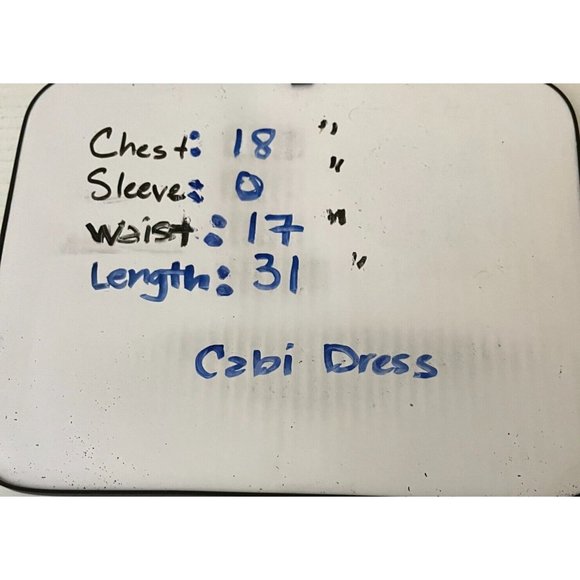 Chest: 18 "
Sleeve: 0 "
Waist: 17 "
Length: 31 "
Cabi Dress